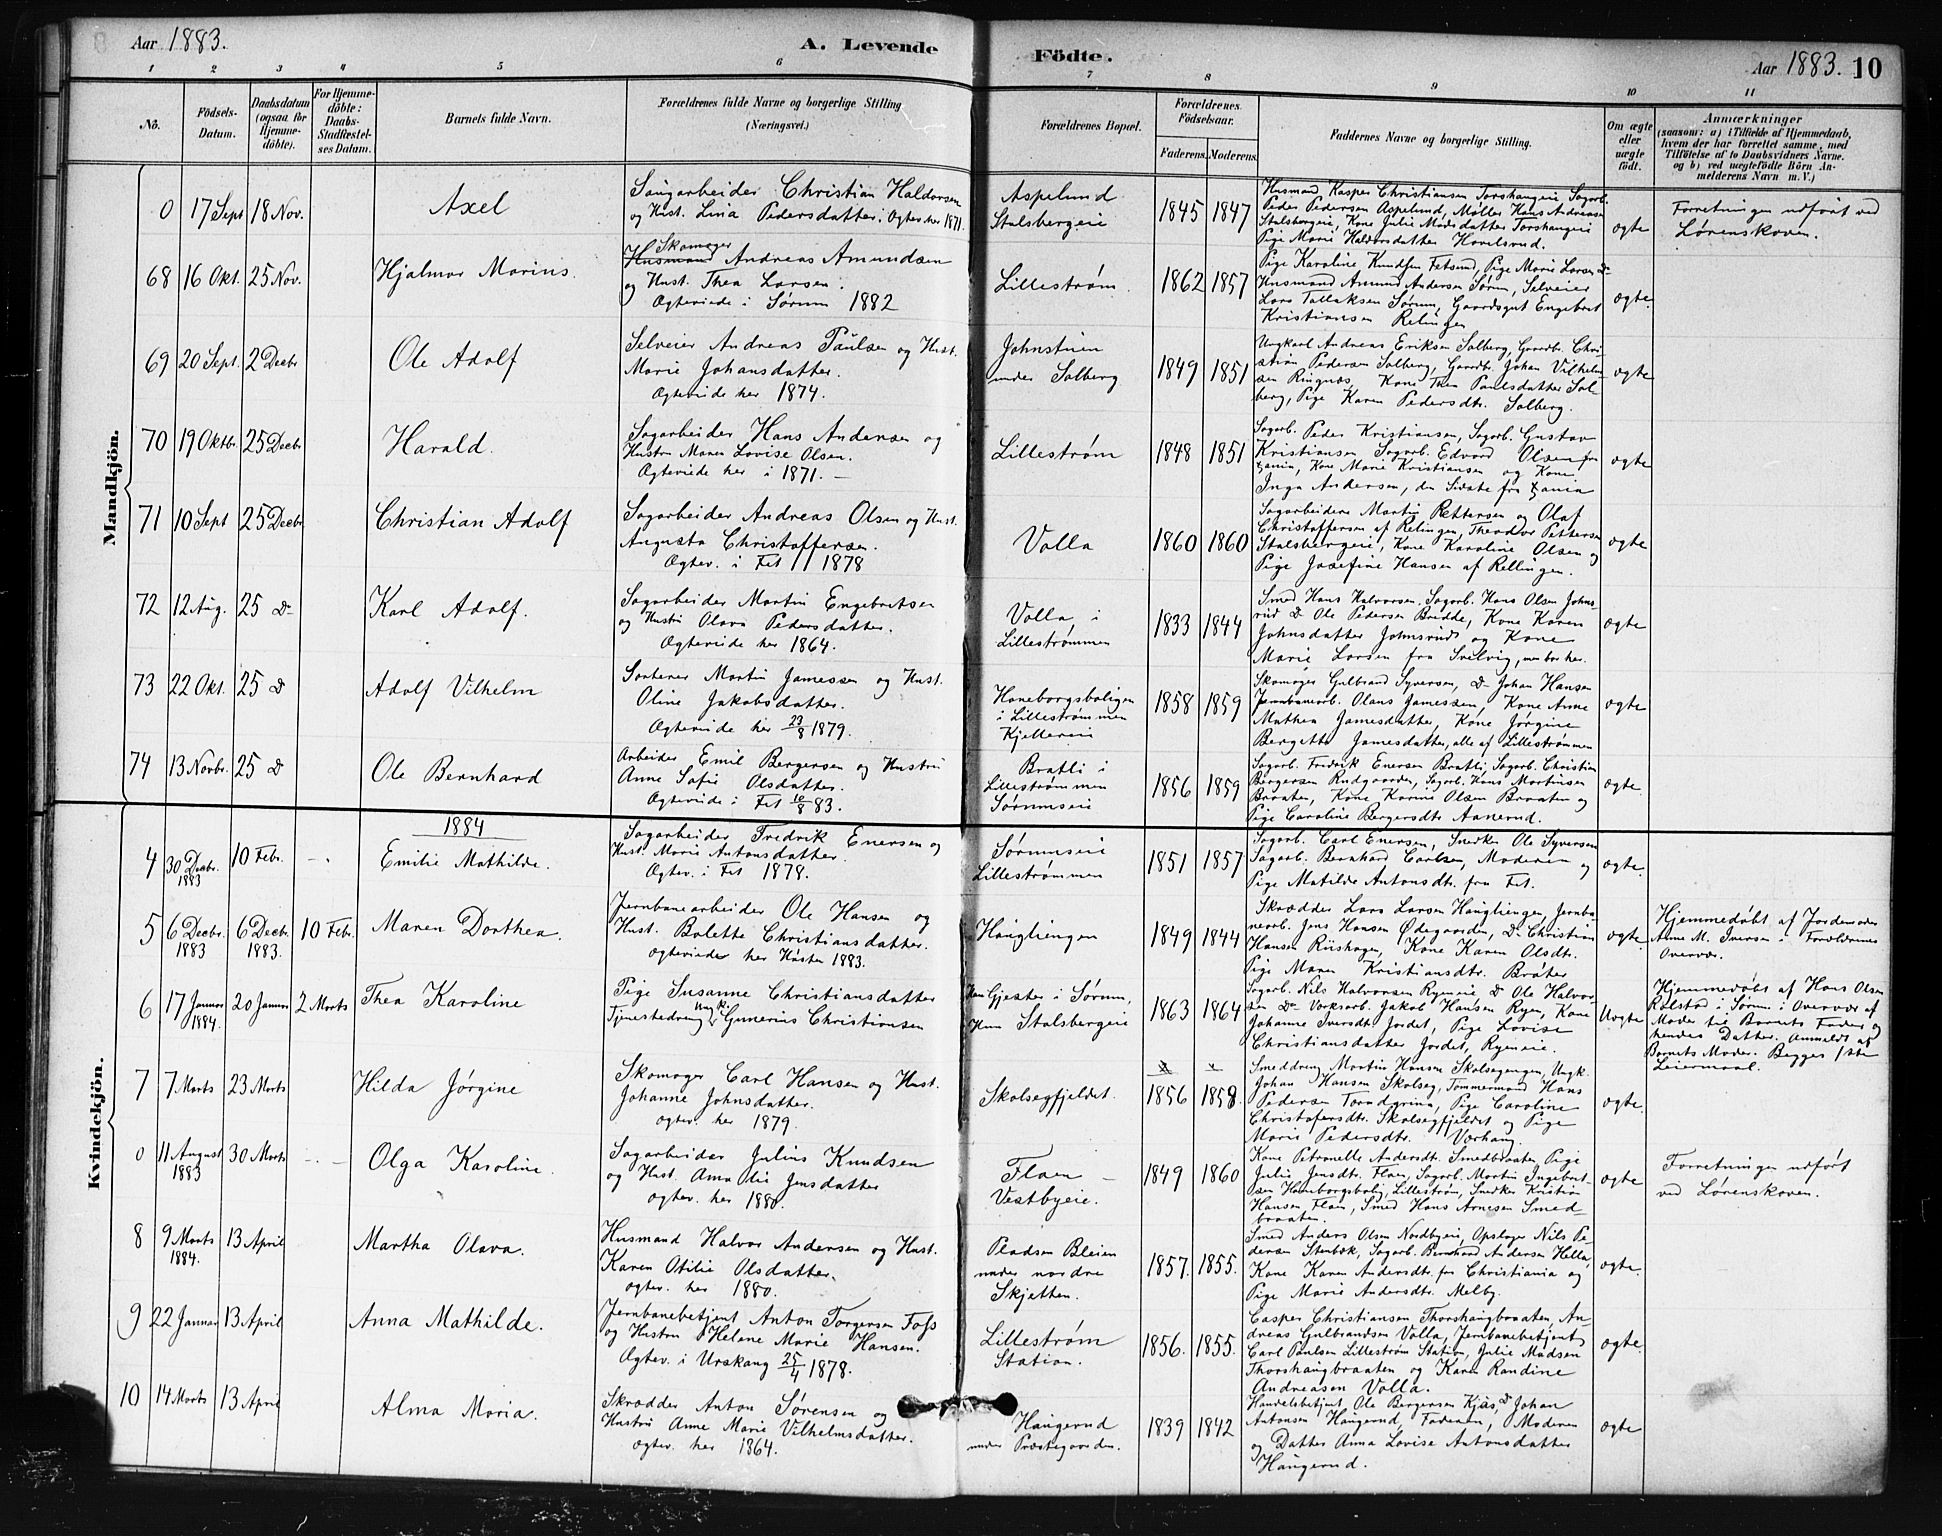 Aar 1883.
A. Levende Födte.
Aar 1883. 10
1 2 3 4 5 6 7 8 9 10 11
No.
Födsels-
Datum.
Daabsdatum
(ogsaa for
Hjemme-
döbte).
For Hjemme-
döbte:
Daabs-
Stadfæstel-
ses Datum.
Barnets fulde Navn.
Forældrenes fulde Navne og borgerlige Stilling
(Næringsvei.)
Forældrenes Bopæl.
Forældrenes
Födselsaar.
Faderens. Moderens.
Faddernes Navne og borgerlige Stilling.
Om ægte
eller
uægte
født.
Anmærkninger
(saasom: a) i Tilfælde af Hjemmedaab,
hvem der har forrettet samme, med
Tilføielse af to Daabsvidners Navne.
og b) ved uægtefödte Börn An-
melderens Navn m. V.)
Mandkjön.
0 17 Sept 18 Nov.
Axel
Saugarbeider Christian Haldorsen
og Hust. Lina Pedersdatter. Ægtev. her 1871.
Aspelund
Stalsbergeie
1845 1847
Husmand Kasper Christiansen Torshaugeie Sagarb.
Peder Pedersen Aspelund, Møller Hans Andreasen
Stalsbergeie, Kone Julie Madsdatter Torshaugeie
Pige Marie Haldorsdatter
ægte
Forretningen udført ved
Lørenskoven.
68 16 Okt. 25 Nov.
Hjalmar Marius.
Skomager
Husmand Andreas Amundsen
og Hust. Thea Larsen.
Ægteviede i Sørum 1882
Lillestrøm.
1862 1857
Pige Karoline Knudsen Fetsund, Pige Marie Larsen Do
Husmand Amund Andersen Sørum, Selveier
Lars Tollaksen Sørum, Gaardsgut Engebret
Kristiansen Relingen
ægte
69 20 Sept. 2 Decbr
Ole Adolf
Selveier Andreas Paulsen og Hust.
Marie Johansdatter.
Ægteviede her 1874.
Johnstuen
under Solberg
1849 1851
Ungkarl Andreas Eriksen Solberg, Gaardb. Chri-
stian Pedersen Solberg, Gaardb. Johan Vilhelm-
sen Ringnæs, Kone Thea Paulsdatter Sol-
berg, Pige Karen Pedersdtr. Solberg.
ægte
70 19 Oktbr. 25 Decbr
Harald.
Sagarbeider Hans Andersen og
Hustru Maren Lovise Olsen.
Ægteviede her i 1871. —
Lillestrøm
1848 1851
Sagarb. Peder Kristiansen, Sagarb. Gustav
Kristiansen Sagarb. Edvard Olsen fra
Xania, Kone Marie Kristiansen og Kone
Inga Andersen, den Sidste fra Xania
ægte
71 10 Sept 25 Decbr
Christian Adolf
Sagarbeider Andreas Olsen og Hust.
Augusta Christoffersen.
Ægtev. i Fet 1878
Volla
1860 1860
Sagarbeidere Martin Pettersen og Olaf
Christoffersen af Relingen, Theodor Pettersen
Stalsbergeie, Kone Karoline Olsen og
Pige Josefine Hansen af Rellingen.
ægte
72 12 Aug. 25 Do
Karl Adolf.
Sagarbeider Martin Engebretsen
og Hustru Olava Pedersdatter.
Ægteviede her 1864.
Volla i
Lillestrømmen
1833 1844
Smed Hans Halvorsen, Sagarb. Hans Olsen Johns-
rud Do Ole Pedersen Bredde, Kone Karen
Johnsdatter Johnsrud og Kone
Marie Larsen fra Svelvig, men bor her.
ægte
73 22 Okt. 25 D
Adolf Vilhelm
Sorterer Martin Jamessen og Hust.
Oline Jakobsdatter.
Ægteviede her 23/8 1879.
Haneborgsboligen
i Lillestrømmen
Kjellereie
1858 1859
Skomager Gulbrand Syversen, Do Johan Hansen
Jernbanearb. Olaus Jamessen, Kone Anne
Mathea Jamesdatter, Kone Jørgine
Bergette Jamesdatter, alle af Lillestrømmen
ægte
74 13 Novbr. 25 D
Ole Bernhard
Arbeider Emil Bergersen og Hustru
Anne Sofie Olsdatter.
Ægteviede i Fet 10/8 83.
Bratli i
Lillestrømmen
Sørumseie
1856 1859
Sagarb. Fredrik Enersen Bratli, Sagarb. Christian
Bergersen Rudgaarden, Sagarb. Hans Martinsen
Braaten, Kone Karine Olsen Braaten og
Pige Caroline Bergersdtr Aanerud.
ægte.
Kvindekjön.
1884
4 30 Decbr. 1883 10 Febr. - .
Emilie Mathilde.
Sagarbeider Fredrik Enersen og
Hust. Marie Antonsdatter.
Ægtev. i Fet 1878.
Sørumseie
Lillestrømmen
1851 1857
Sagarb. Carl Enersen, Snedker Ole Syversen
Sagarb. Bernhard Carlsen, Moderen og
Pige Matilde Antonsdtr. fra Fet.
ægte.
5 6 Decbr. 1883 6 Decbr. 1883. 10 Febr.
Maren Dorthea.
Jernbanearbeider Ole Hansen og
Hust. Bolette Christiansdatter.
ægteviede her Høsten 1883.
Haugliengen
1849 1844
Skrædder Lars Larsen Haugliengen, Jernba-
nearb. Jens Hansen Ødegaarden, Do Christian
Hansen Riishagen, Kone Karen Olsdtr.
Pige Maren Kristiansdtr. Bråter
ægte
Hjemmedøbt af Jordemoder
Anne M. Iversen i Forældrenes
Overvær.
6 17 Januar 1884. 20 Januar 2 Marts
Thea Karoline
Pige Susanne Christiansdatter
Tjenestedreng Ungk. Gunerius Christiansen
Han Gjester i Sørum,
Hun Stalsbergeie
1863 1864
Sagarb. Nils Halvorsen Ryeneie Do Ole Halvor-
sen Do Værksarb. Jakob Hansen Ryen, Kone
Johanne Iversdt Jordet, Pige Lovise
Christiansdatter Jordet, Ryeneie.
Uægte
Hjemmedøbt af Hans Olsen
Rolstad i Sørum i Overvær af
Moder til Barnets Fader og
hendes Datter. Anmeldt af
Barnets Moder. Begges 1ste
Leiermaal.
7 7 Marts 23 Marts
Hilda Jørgine
Skomager Carl Hansen og Hust.
Johanne Johnsdatter.
ægtev. her 1879.
Skolsegfjeldet.
1856 1858.
Smeddreng Martin Hansen Skolsegengen, Ungk.
Johan Hansen Skolseg, Tømmermand Hans
Pedersen Torudgrina, Pige Caroline
Christofersdtr. Skolsegfjeldet og Pige
Marie Pedersdtr. Vorhaug.
ægte.
0 11 August 1883 30 Marts - -
Olga Karoline.
Sagarbeider Julius Knudsen
og Hust. Anna Olie Jensdatter
ægtev. her 1880.
Flaen —
Vestbyeie.
1849 1860
Kone Petronelle Andersdt. Smedbraaten Pige
Julie Jensdtr. Flaen, Sagarb. Martin Ingebret-
sen Haneborgsbolig, Lillestrøm, Snedker Kristian
Hansen Flaen, Smed Hans Arnesen Smed-
braaten.
ægte
Forretningen udført
ved Lørenskoven.
8 9 Marts 1884. 13 April
Martha Olava.
Husmand Halvor Andersen og Hust.
Karen Otilie Olsdatter.
ægtev. her 1880.
Pladsen Bleien
under nordre
Skjetten.
1857. 1855.
Smed Anders Olsen Nordbyeie, Opslager Nils Pe-
dersen Stenbæk, Sagarb. Bernhard Andersen Hella,
Kone Karen Andersdtr. fra Christiania og
Pige Marie Andersdtr. Melby.
ægte.
9 22 Januar 13 April
Anna Mathilde.
Jernbanebetjent Anton Torgersen Foss
og Hustru Helene Marie Hansen.
Ægtev. i Urskaug 25/4 1878.
Lillestrøm
Station.
1856. 1855.
Casper Christiansen Thorshaugbraaten, An-
dreas Gulbrandsen Volla, Jernbanebetjent
Carl Paulsen Lillestrøm Station, Julie Madsen
Thorshaugbraaten og Karen Randine
Andreasen Volla.
ægte.
10 14 Marts 13 April
Alma Maria.
Skrædder Anton Sørensen og
Hustru Anne Marie Vilhelmsdatter.
ægtev. her 1864.
Haugerud
under Præstegaarden.
1839 1842
Handelsbetjent Ole Bergersen Kjus, D Johan
Antonsen Haugerud, Faderen, Moderen
og Datter Anna Lovise Antonsdatter
Haugerud.
ægte